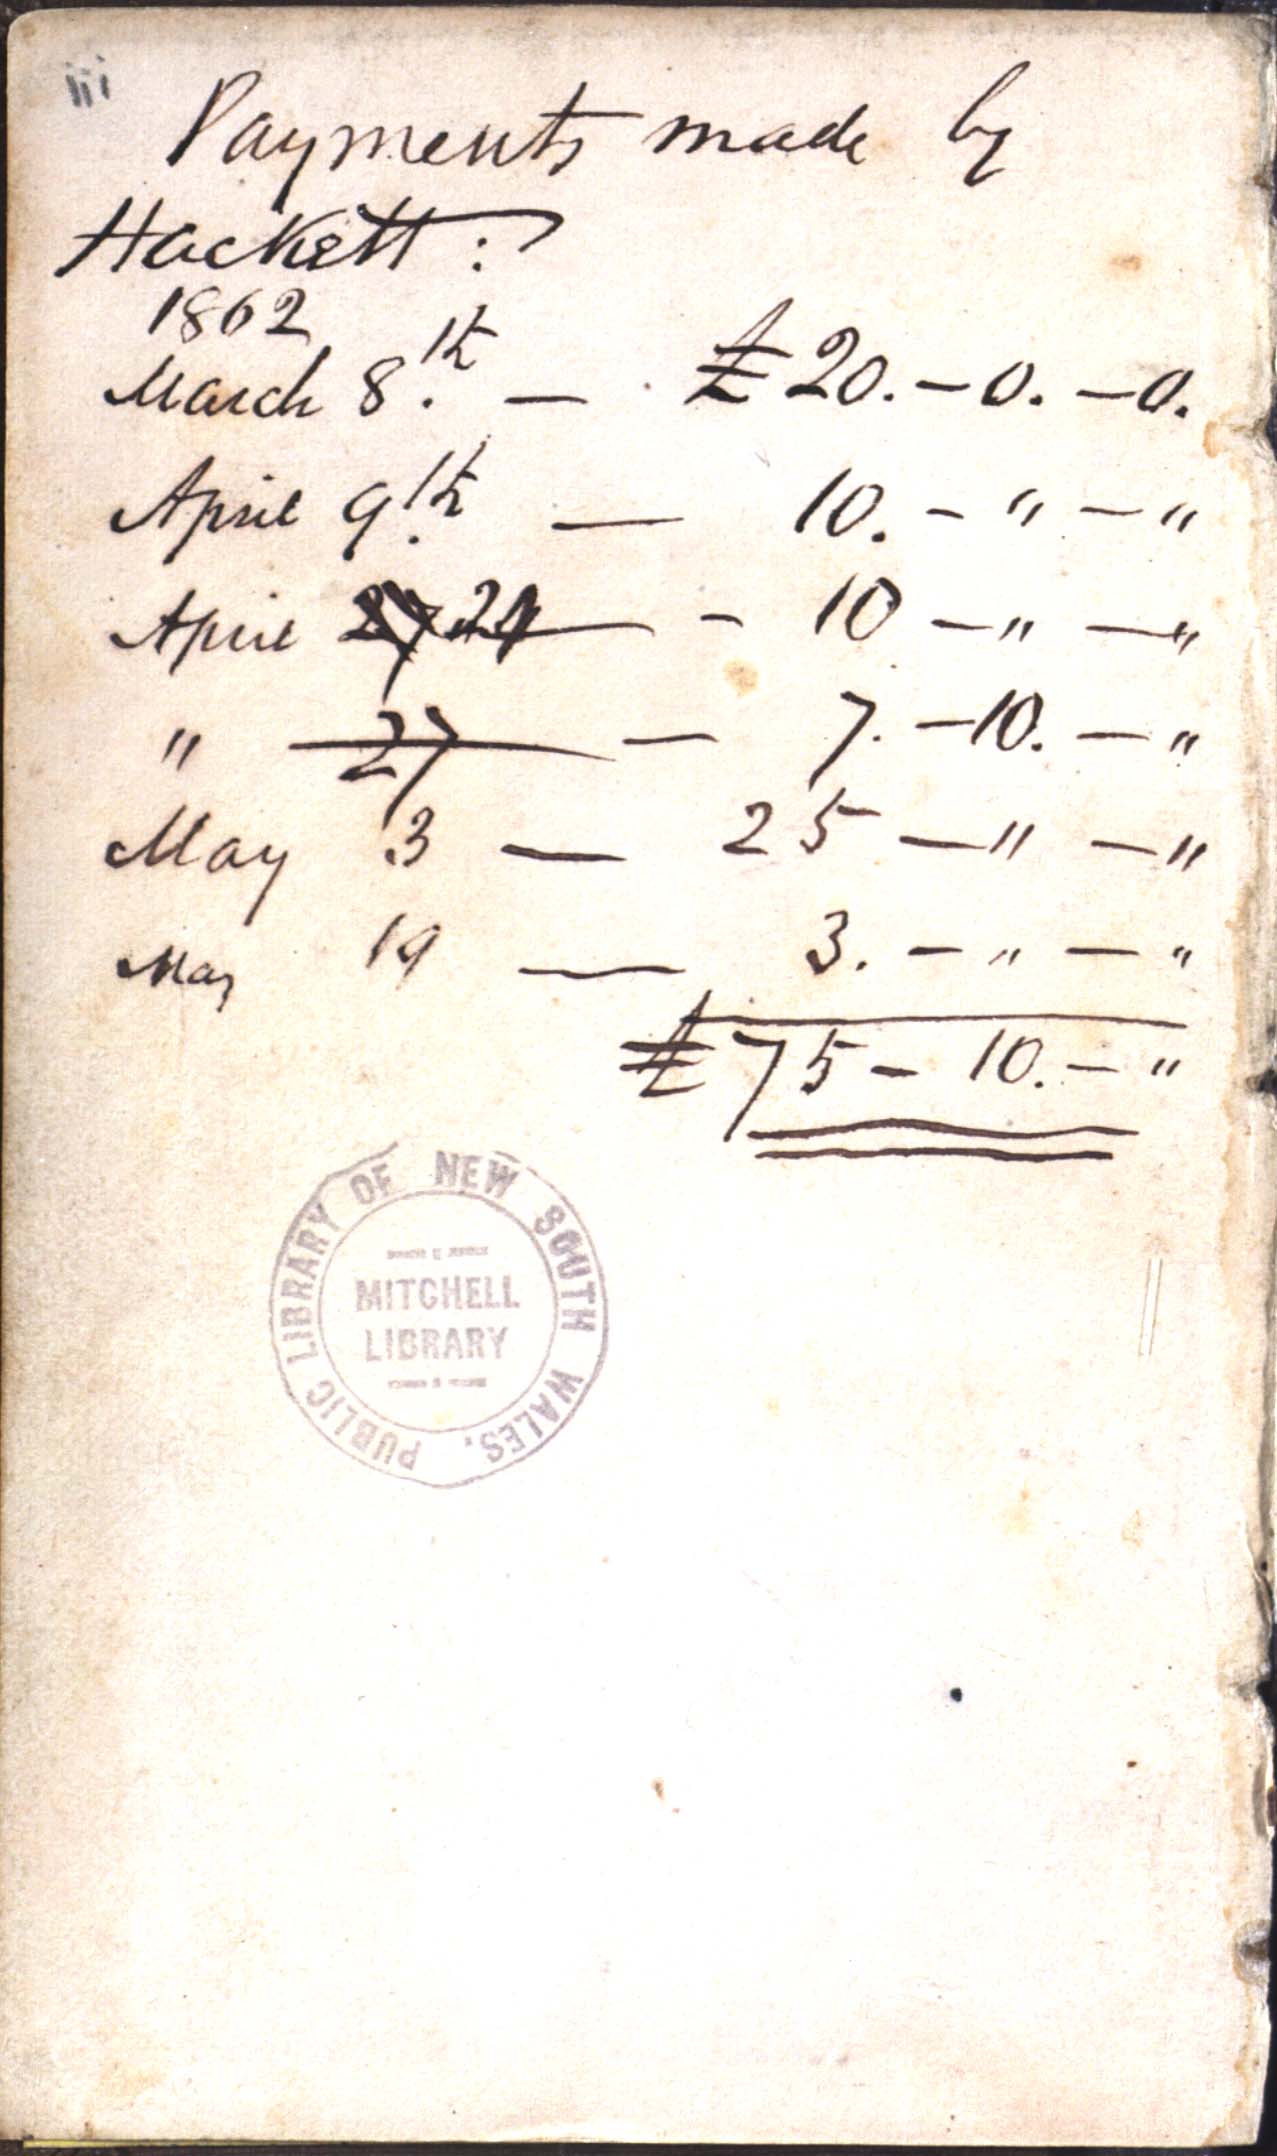 iii
Payments made by
Hackett :
1862
March 8.th — £20. – 0. – 0.
April 9th — 10. – " – "
April 27 24 – 10 – " – "
" 27 — 7. – 10. – "
May 3 — 25 – " – "
May 19 — 3. – " – "
£75 – 10. – "
PUBLIC LIBRARY OF NEW SOUTH WALES.
MITCHELL
LIBRARY